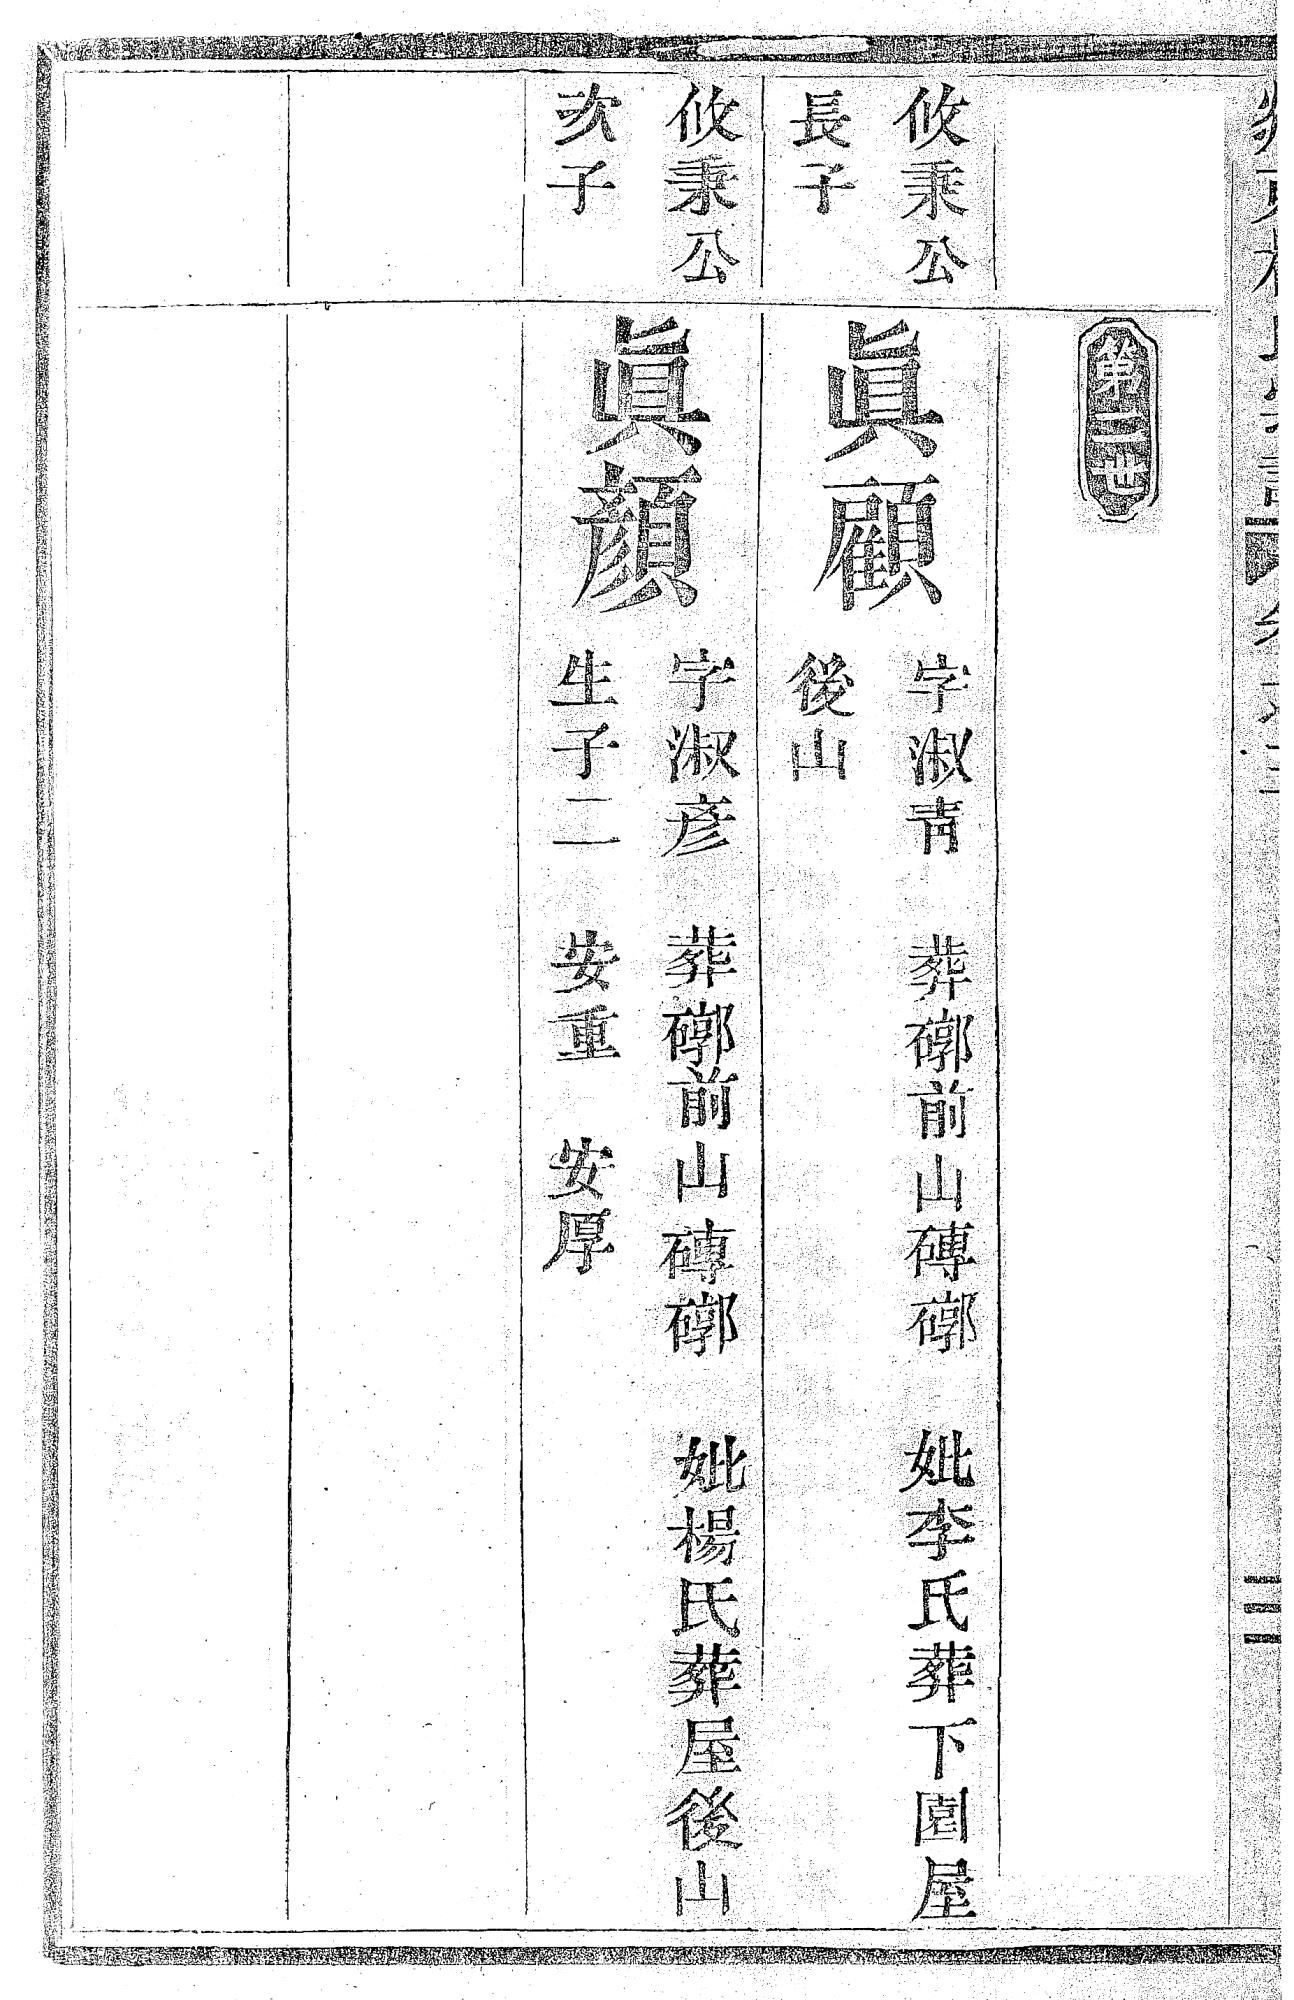 第二世
攸秉公
長子
眞顧
字淑靑 葬槨前山磚槨 妣李氏葬下園屋
後山
攸秉公
次子
眞顏
字淑彥 葬槨前山磚槨 妣楊氏葬屋後山
生子二 安重 安厚